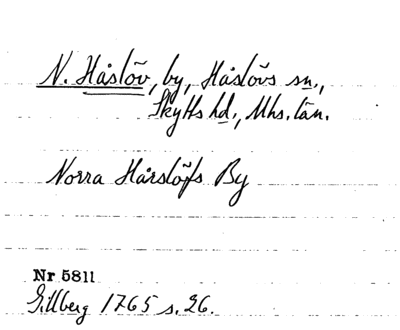 N. Håslöv, by, Håslövs sn.,
Skytts hd., Mhs. län.
Norra Hårslöfs By
Nr 5811
Gillberg 1765 s. 26.